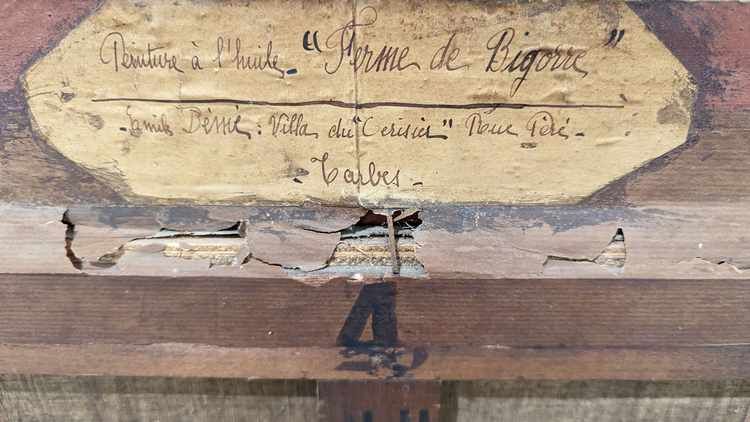 Peinture à l'huile_ "Ferme de Bigorre"
Emile Dessé : Villa du "Cerisier" Rue Péré_
_Tarbes_
4